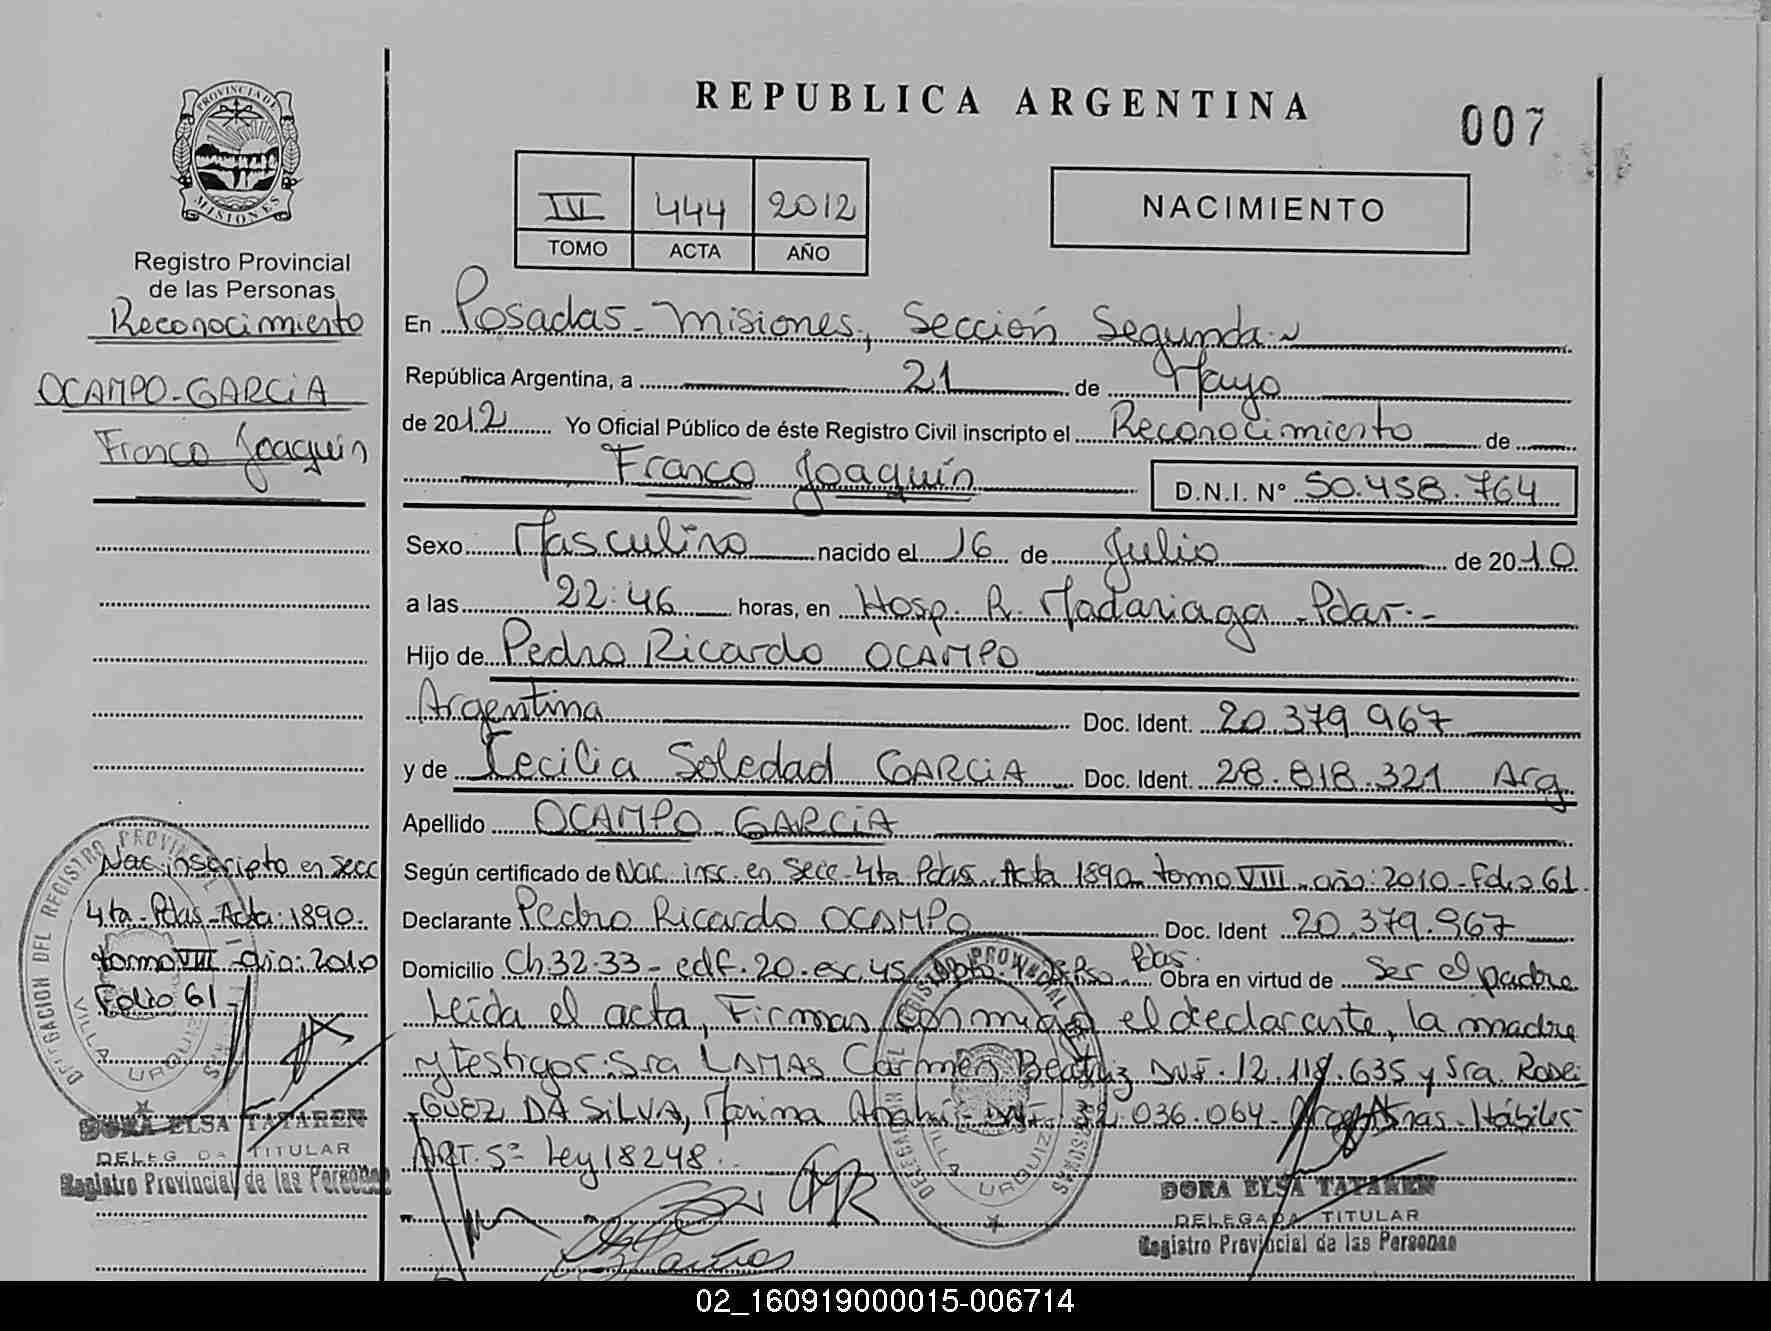 PROVINCIA DE
MISIONES
Registro Provincial
de las Personas
Reconocimiento
OCAMPO-GARCIA
Franco Joaquín
Nac. inscripto en Secc
4ta-Pdas-Acta: 1890-
tomo VIII-año: 2010
Folio 61-
DELEGACION DEL REGISTRO PROVINCIAL
VILLA URQUIZA
DORA ELSA TATAREN
DELEGADA TITULAR
Registro Provincial de las Personas
REPUBLICA ARGENTINA
007
III 444 2012
TOMO ACTA AÑO
NACIMIENTO
En Posadas-Misiones, Sección Segunda
República Argentina, a 21 de Mayo
de 2012 Yo Oficial Público de éste Registro Civil inscripto el Reconocimiento de
Franco Joaquín D.N.I. N° 50.458.764
Sexo Masculino nacido el 16 de Julio de 2010
a las 22:46 horas, en Hosp. R. Madariaga-Pdas.-
Hijo de Pedro Ricardo OCAMPO
Argentina Doc. Ident. 20.379.967
y de Cecilia Soledad GARCIA Doc. Ident. 28.818.321 Arg
Apellido OCAMPO-GARCIA
Según certificado de Nac. insc. en Secc-4ta Pdas. Acta 1890 tomo VIII. año: 2010-Folio 61.
Declarante Pedro Ricardo OCAMPO Doc. Ident 20.379.967
Domicilio Ch.32-33-edf.20-esc.45 Pdas. Obra en virtud de Ser el padre
Leída el acta, Firman conmigo el declarante, la madre
y testigos: Sra LAMAS Carmen Beatriz DNI-12.118.635 y Sra. RODRI
GUEZ DA SILVA, Marina Anahí-DNI-32.036.064-Argentinas-Hábiles-
ART. 5° Ley 18248.
DELEGACION DEL REGISTRO PROVINCIAL
VILLA URQUIZA
DORA ELSA TATAREN
DELEGADA TITULAR
Registro Provincial de las Personas
02_160919000015-006714